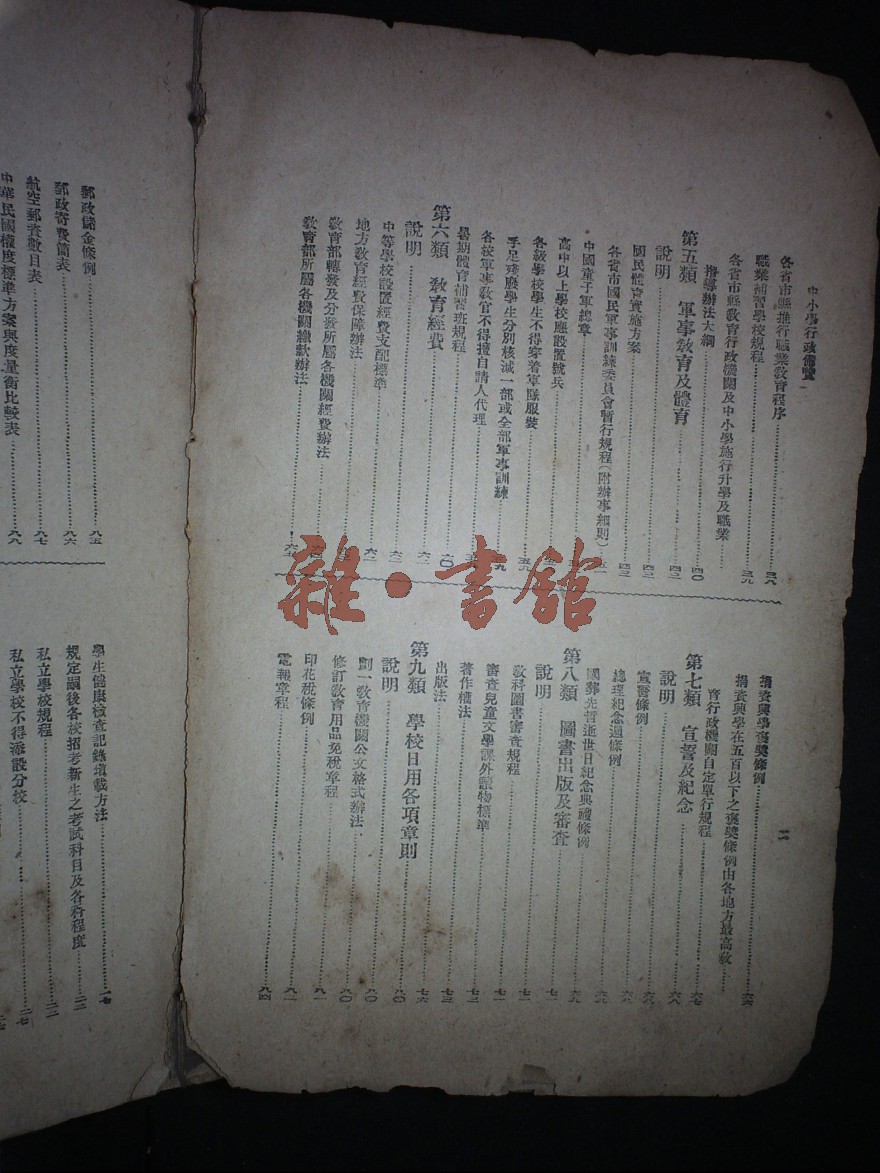 中小學行政備覽
二
各省市縣推行職業教育程序……三八
職業補習學校規程……三九
各省市縣教育行政機關及中小學施行升學及職業
指導辦法大綱……四〇
第五類 軍事教育及體育
說明……四二
國民體育實施方案……四二
各省市國民軍事訓練委員會暫行規程(附辦事細則)
中國童子軍總章
高中以上學校應設置號兵
各級學校學生不得穿着軍隊服裝……五九
手足殘廢學生分別核減一部或全部軍事訓練
各校軍事教官不得擅自請人代理
暑期體育補習班規程……六〇
第六類 教育經費
說明……六一
中等學校設置經費支配標準……六二
地方教育經費保障辦法……六二
教育部轉發及分發所屬各機關經費辦法
教育部所屬各機關繳款辦法
捐資興學褒獎條例……六六
捐資興學在五百以下之褒獎條例由各地方最高教
育行政機關自定單行規程……六七
第七類 宣誓及紀念
說明……六八
宣誓條例……六八
總理紀念週條例……六八
國葬先哲逝世日紀念典禮條例……六九
第八類 圖書出版及審查
說明……七一
教科圖書審查規程……七一
審查兒童文學課外讀物標準……七一
著作權法……七二
出版法……七三
第九類 學校日用各項章則
說明……八〇
劃一教育機關公文格式辦法……八〇
修訂教育用品免稅章程……八〇
印花稅條例……八一
電報章程……八四
郵政儲金條例……八五
郵政寄費簡表……八六
航空郵資數目表……八七
中華民國權度標準方案與度量衡比較表……八八
學生健康檢查記錄填載方法……一七
規定嗣後各校招考新生之考試科目及各科程度……二二
私立學校規程……二二
私立學校不得添設分校……二七
雜·書館